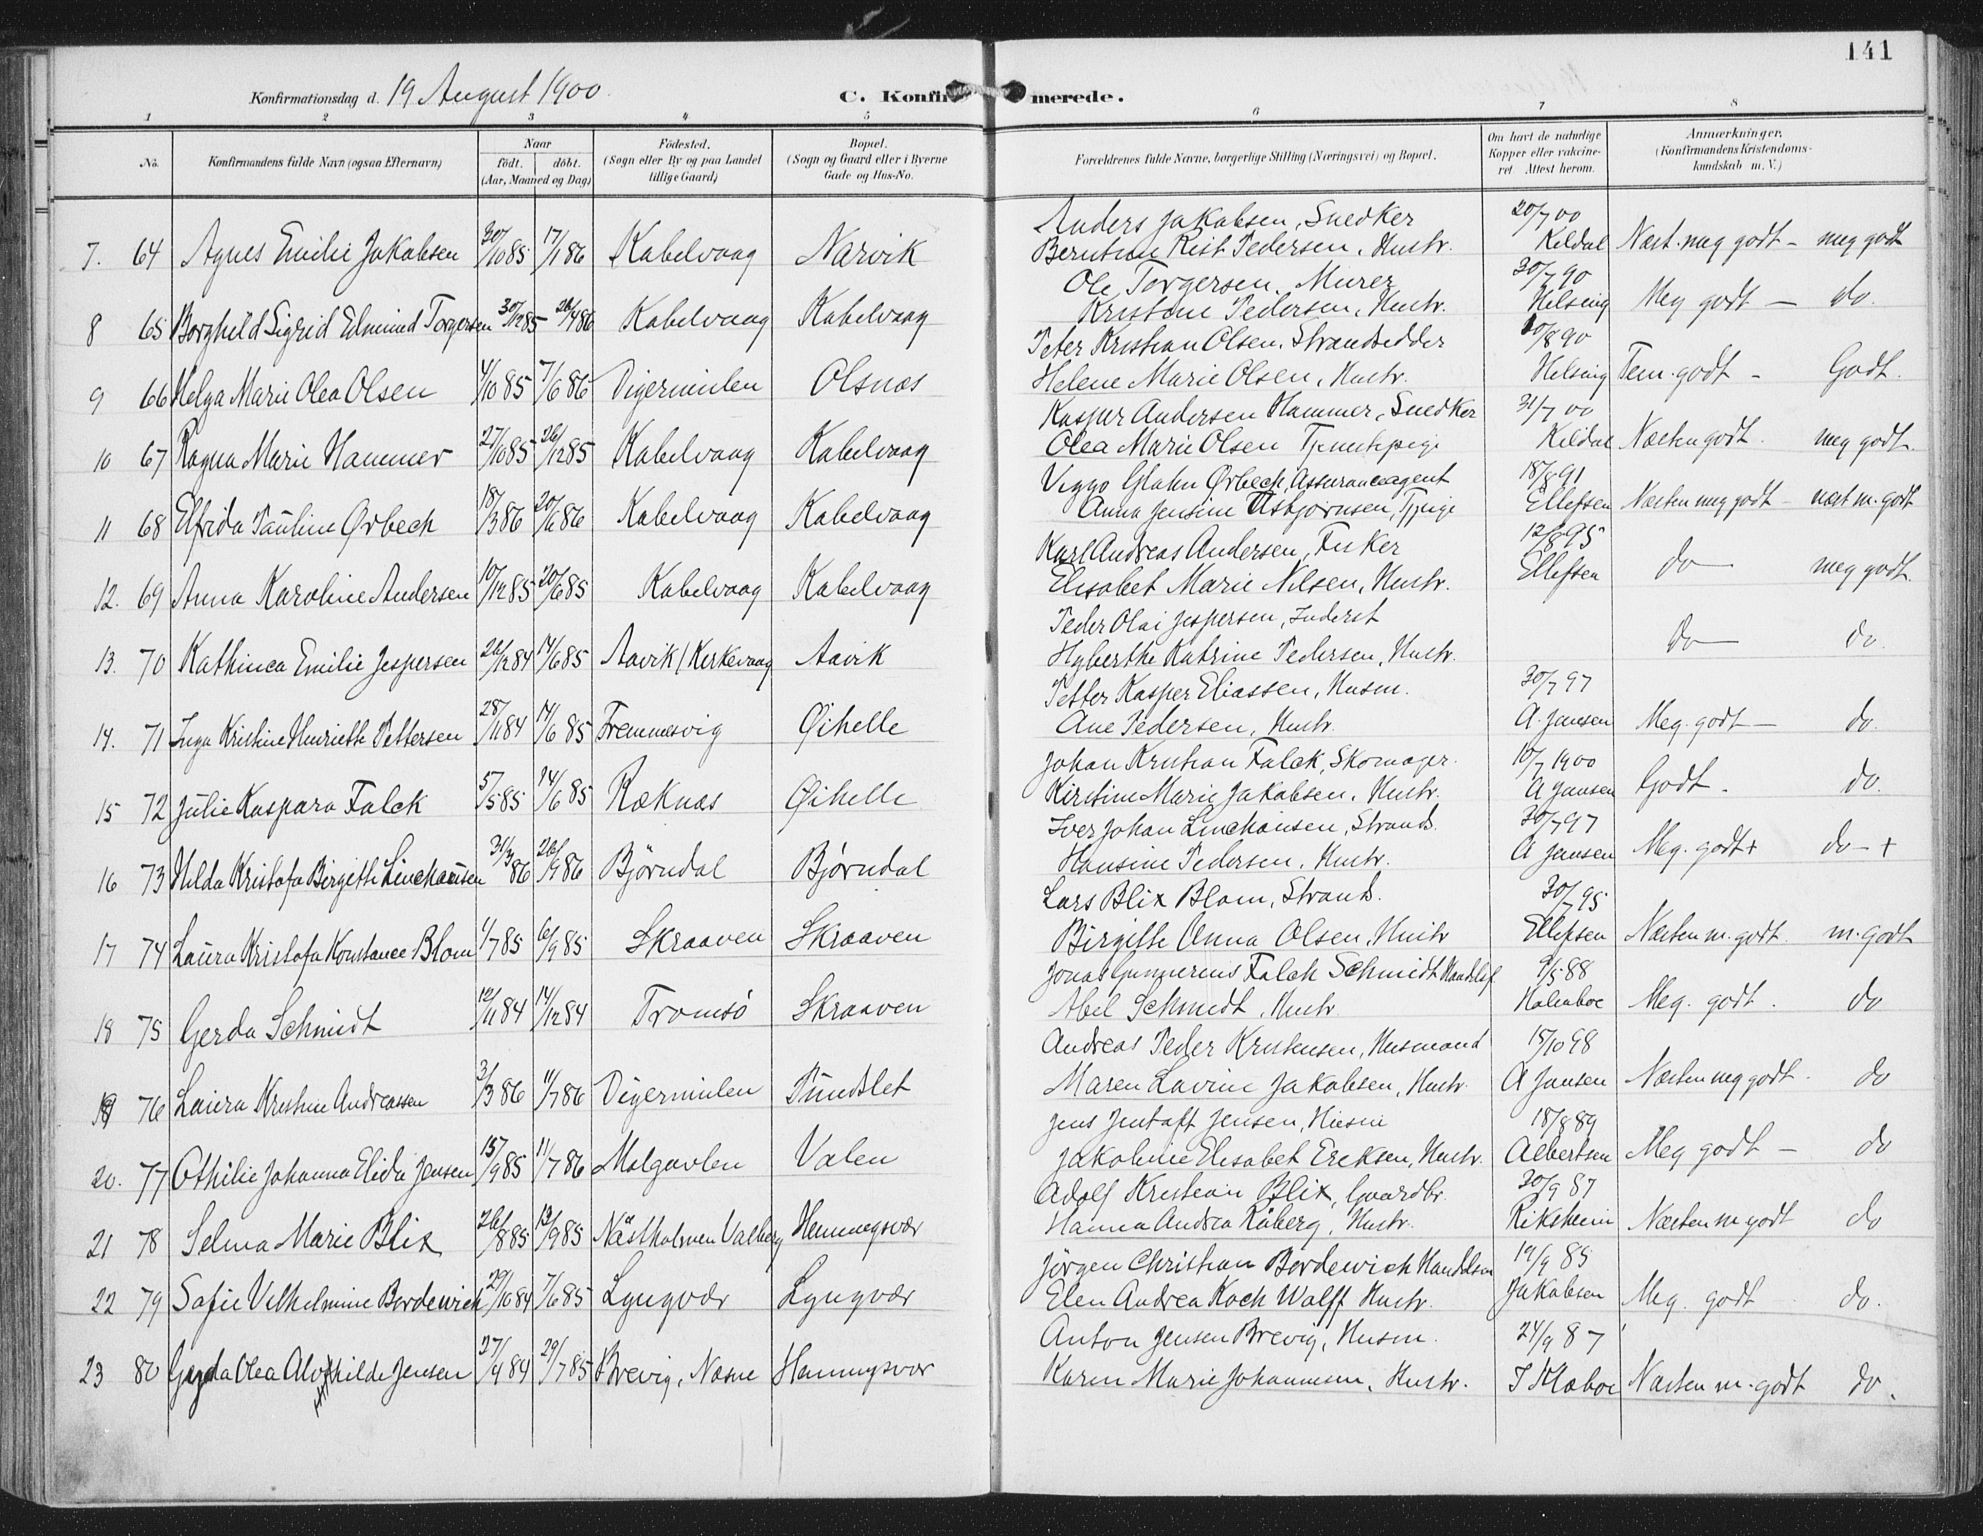 141
Konfirmationsdag d. 19 August 1900. C. Konfirmerede.
1 2 3 4 5 6 7 8
No. Konfirmandens fulde Navn (ogsaa Efternavn) Naar födt. döbt. (Aar, Maaned og Dag) Födested. (Sogn eller By og paa Landet tillige Gaard) Bopæl. (Sogn og Gaard eller i Byerne Gade og Hus-No. Forældrenes fulde Navne, borgerlige Stilling (Næringsvei) og Bopæl. Om havt de naturlige Kopper eller vakcineret Attest herom. Anmærkninger. (Konfirmandens Kristendomskundskab m. V.)
Anders Jakobsen, Snedker 20/7 00
7. 64 Agnes Emilie Jakobsen 30/10 85 17/1 86 Kabelvaag Narvik Pedersen, Hustr. Kildal Næst. meg godt - meg godt
Ole Torgersen, Murer 30/7 90
8 65 Borghild Sigrid Edmund Torgersen 30/12 85 26/4 86 Kabelvaag Kabelvaag Kristine Pedersen, Hustr. Helsing Meg godt - do.
Peter Kristian Olsen, Strandsedder 10/8 90
9 66 Helga Marie Olea Olsen 4/10 85 7/6 86 Digermulen Olsnæs Helene Marie Olsen, Hustr. Helsing Tem. godt - Godt.
Kasper Andersen Hammer, Snedker 31/7 00
10 67 Ragna Marie Hammer 27/10 85 26/12 85 Kabelvaag Kabelvaag Olea Marie Olsen Kildal Næsten godt. meg godt.
Viggo Glahn Ørbech, Assuranceagent 18/8 91
11 68 Elfrida Pauline Ørbech 18/3 86 20/6 86 Kabelvaag Kabelvaag Anna Jensine Asbjørnsen, Tjpige Ellefsen Næsten meg godt - næst m. godt
Karl Andreas Andersen, Fisker 12/8 95
12. 69 Anna Karoline Andersen 10/12 85 20/6 85 Kabelvaag Kabelvaag Elisabet Marie Nilsen, Hustr. Ellefsen do - meg godt.
Peder Olai Jespersen, Inderst
13. 70 Kathinca Emilie Jespersen 26/12 84 14/6 85 Aavik / Kirkevaag Aavik Hyberthe Katrine Pedersen, Hustr. do - do.
Petter Kasper Eliassen, Husm. 30/7 97
14. 71 Inga Kristine Henriette Pettersen 28/11 84 14/6 85 Fremmesvig Øihelle Ane Pedersen, Hustr. A. Jansen Meg. godt - do.
Johan Kristian Falck, Skomager. 10/7 1900
15 72 Julie Kaspara Falck 5/5 85 14/6 85 Ræknæs Øihelle Kirstine Marie Jakobsen, Hustr. A Jansen Godt - do.
Iver Johan Linehausen, Strands. 30/7 97
16 73 Hilda Kristofa Birgitte Linehausen 31/3 86 26/9 86 Björndal Bjørndal Hansine Pedersen, Hustr. A Jansen Meg. godt + do - +
Lars Blix Blom, Strands. 30/7 95
17 74 Laura Kristofa Konstance Blom 4/7 85 6/9 85 Skraaven Skraaven Birgitte Anna Olsen, Hustr Ellefsen Næsten m. godt. m. godt
Jonas Falck Schmidt Handelsf. 9/5 88
18 75 Gerda Schmidt 12/11 84 14/12 84 Tromsö Skraaven Abel Schmidt, Hustr Holmboe Meg. godt. do
Andreas Peder Kristensen, Husmand 15/10 98
19 76 Laura Kristine Andreassen 31/3 86 11/7 86 Digermulen Pundslet Maren Lavine Jakobsen, Hustr. A Jansen Næsten meg godt. do
Jens Jentoft Jensen, Husm 18/8 89
20. 77 Othilie Johanna Elida Jensen 15/9 85 11/7 86 Molgavlen Valen Jakobine Elisabet Ereksen, Hustr. Albertsen Meg godt - do
Adolf Kristian Blix, Gaardbr. 30/9 87
21 78 Selma Marie Blix 26/8 85 13/9 85 Næstholmen Valberg Henningsvær Hanna Andrea Råberg, Hustr. Riksheim Næsten m godt do
Jörgen Christian Bordewich Handelsm 19/9 85
22 79 Sofie Vilhelmine Bordewich 29/10 84 7/6 85 Lyngvær Lyngvær Elen Andrea Koch Wolff Hustr. Jakobsen Meg. godt do.
Anton Jensen Brevig, Husm. 24/9 87
23 80 Gyda Olea Alvhilde Jensen 27/9 84 29/7 85 Brevig, Næsne Henningsvær Karen Marie Johannesen, Hustr. J Klæboe Næsten m. godt do.